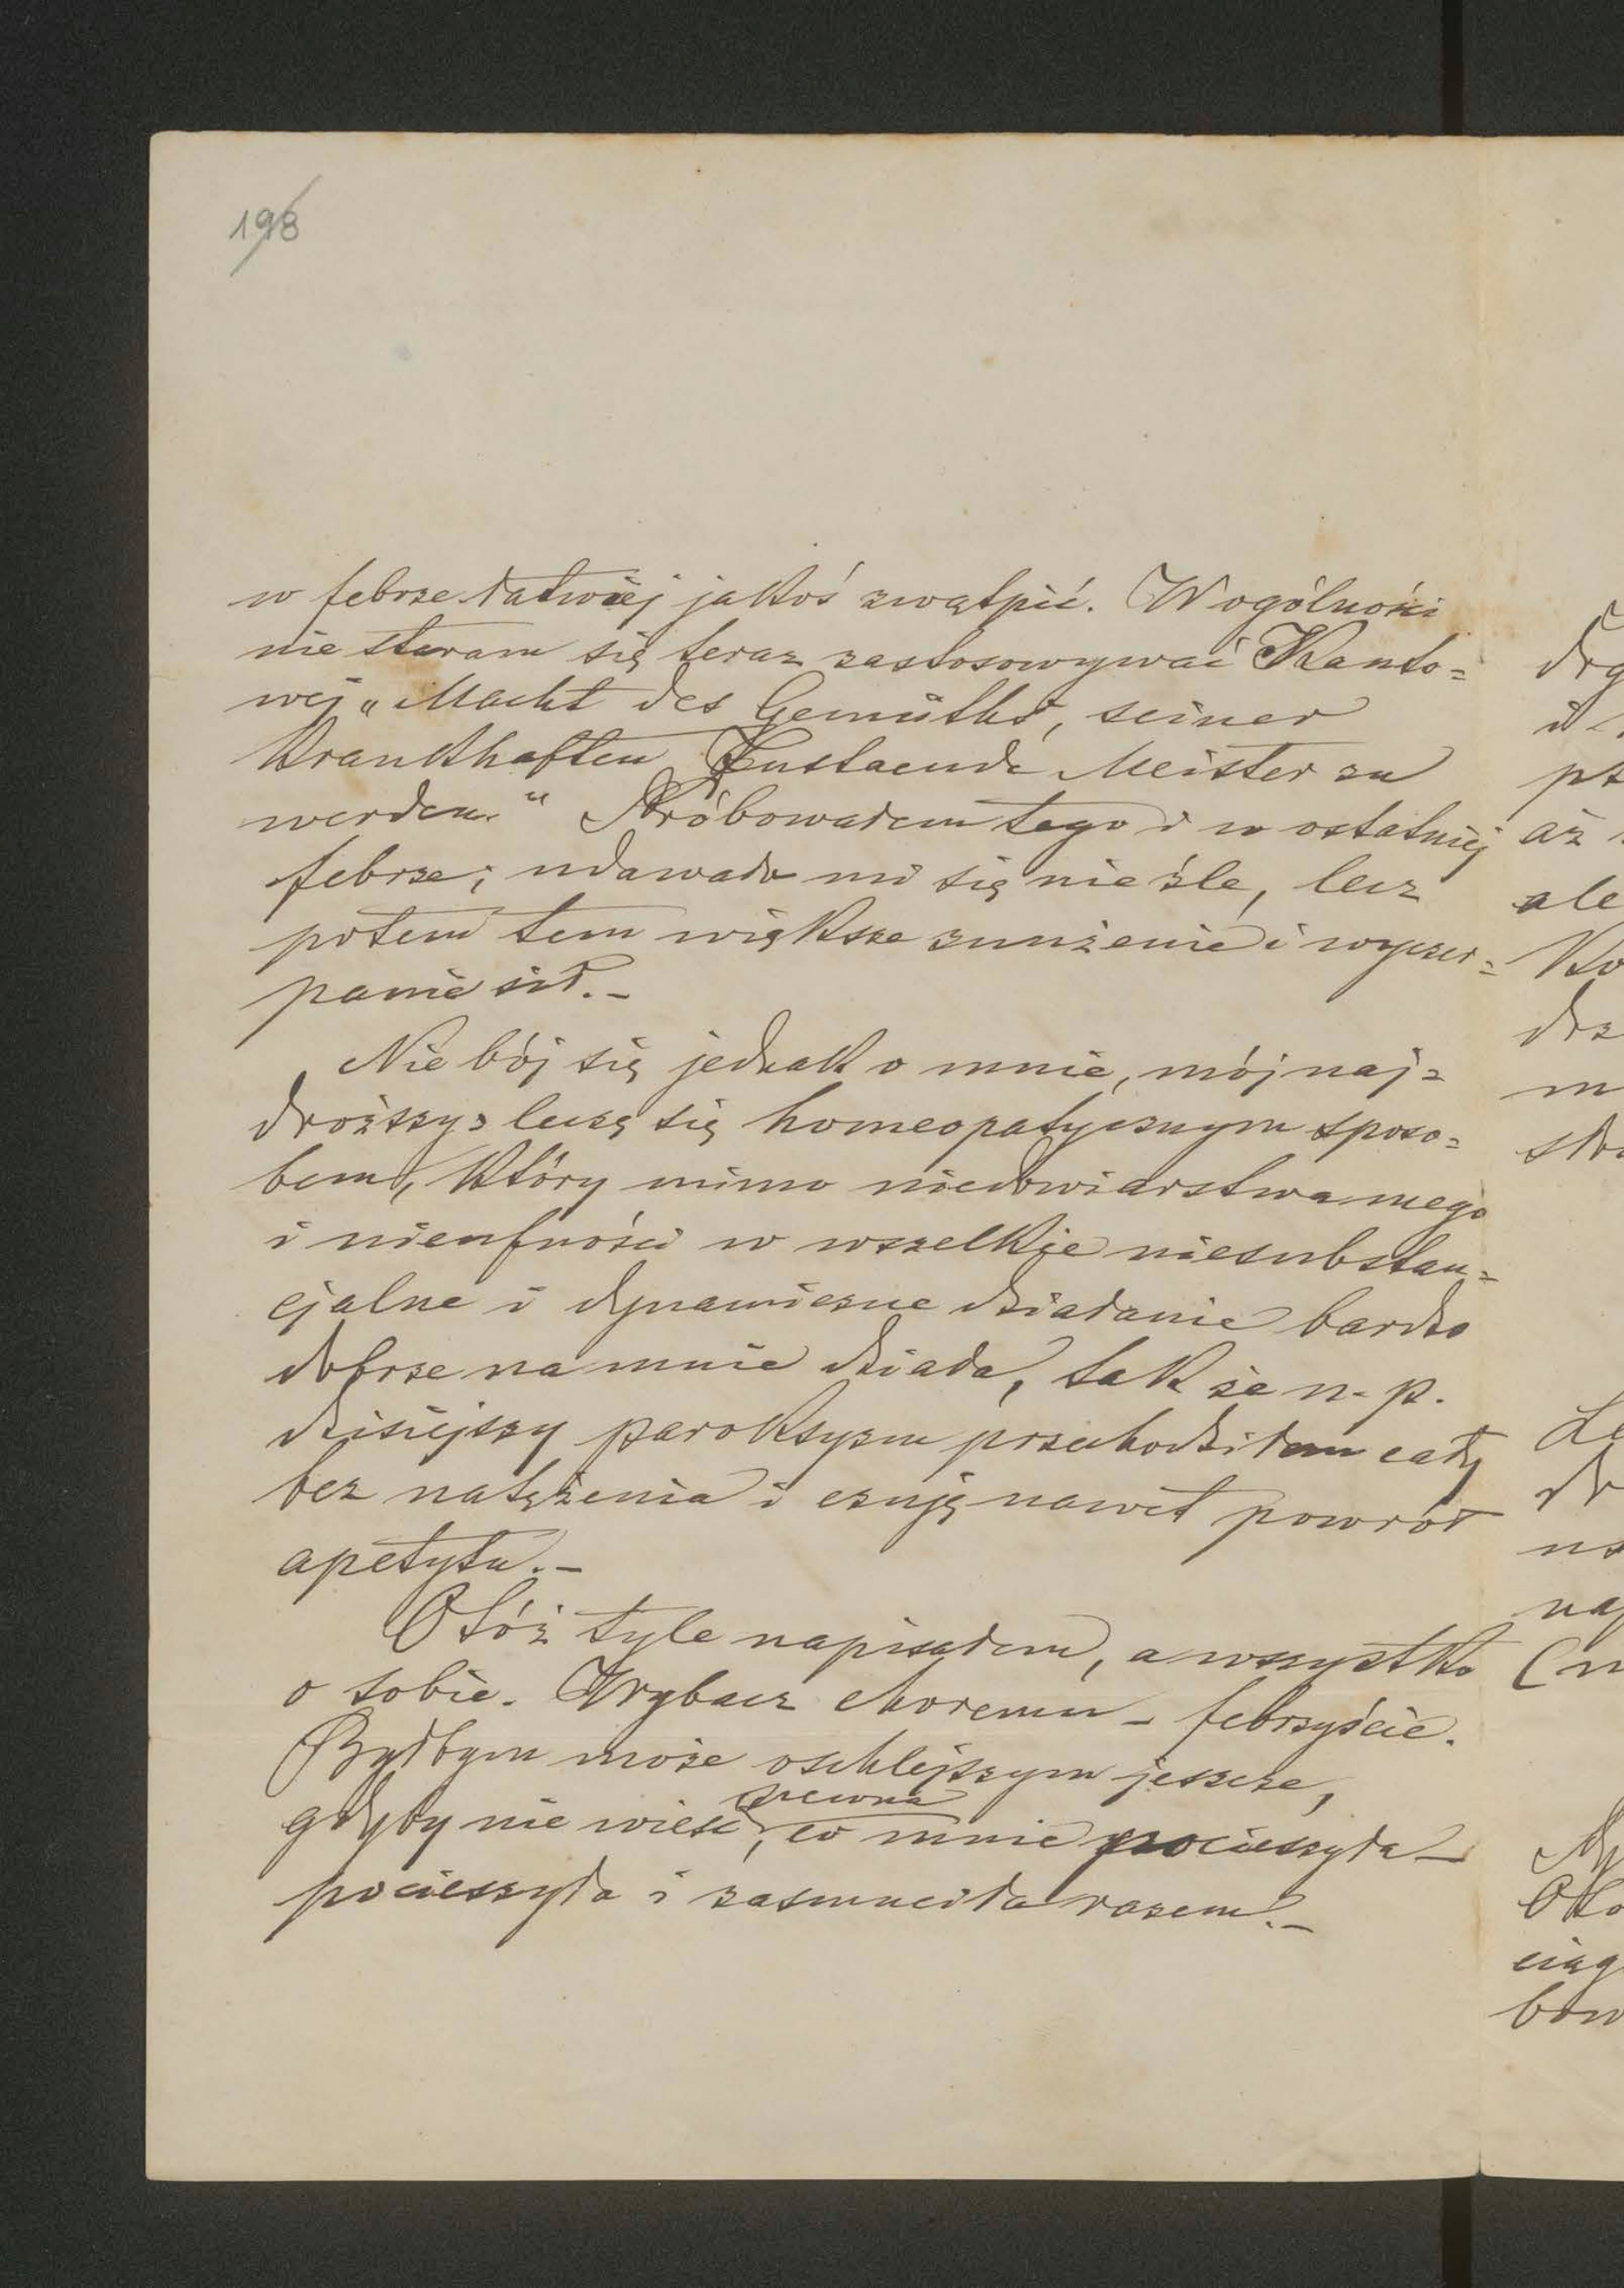 198
w febrze łatwiej jakoś zwątpić. W ogólności
nie staram się teraz zastosowywać Kanto=
wej „Macht des Gemüths, seiner
krankhaften Zustaende Meister zu
werden.“ Próbowałem tego i w ostatniej
febrze; udawało mi się nieźle, lecz
potem tem większe znużenie i wyczer=
panie sił.–
Nie bój się jednak o mnie, mój naj=
droższy: leczę się homeopatycznym sposo=
bem, który mimo niedowiarstwa mego
i nieufności w wszelkie niesubstan=
cjalne i dynamiczne działanie bardzo
dobrze na mnie działa, tak że n. p.
dzisiejszy paroksyzm przechodziłem cały
bez natężenia i czuję nawet powrót
apetytu.–
Otóż tyle napisałem, a wszystko
o sobie. Wybacz choremu – febrzyście.
Byłbym może oschlejszym jeszcze,
gdyby nie wieść pewna, co mnie pocieszyła –
pocieszyła i zasmuciła razem.–
drg
pt
aż
ale
ko
drz
m
sło
Le
dr
na
(n
Oto
ciąg
bow